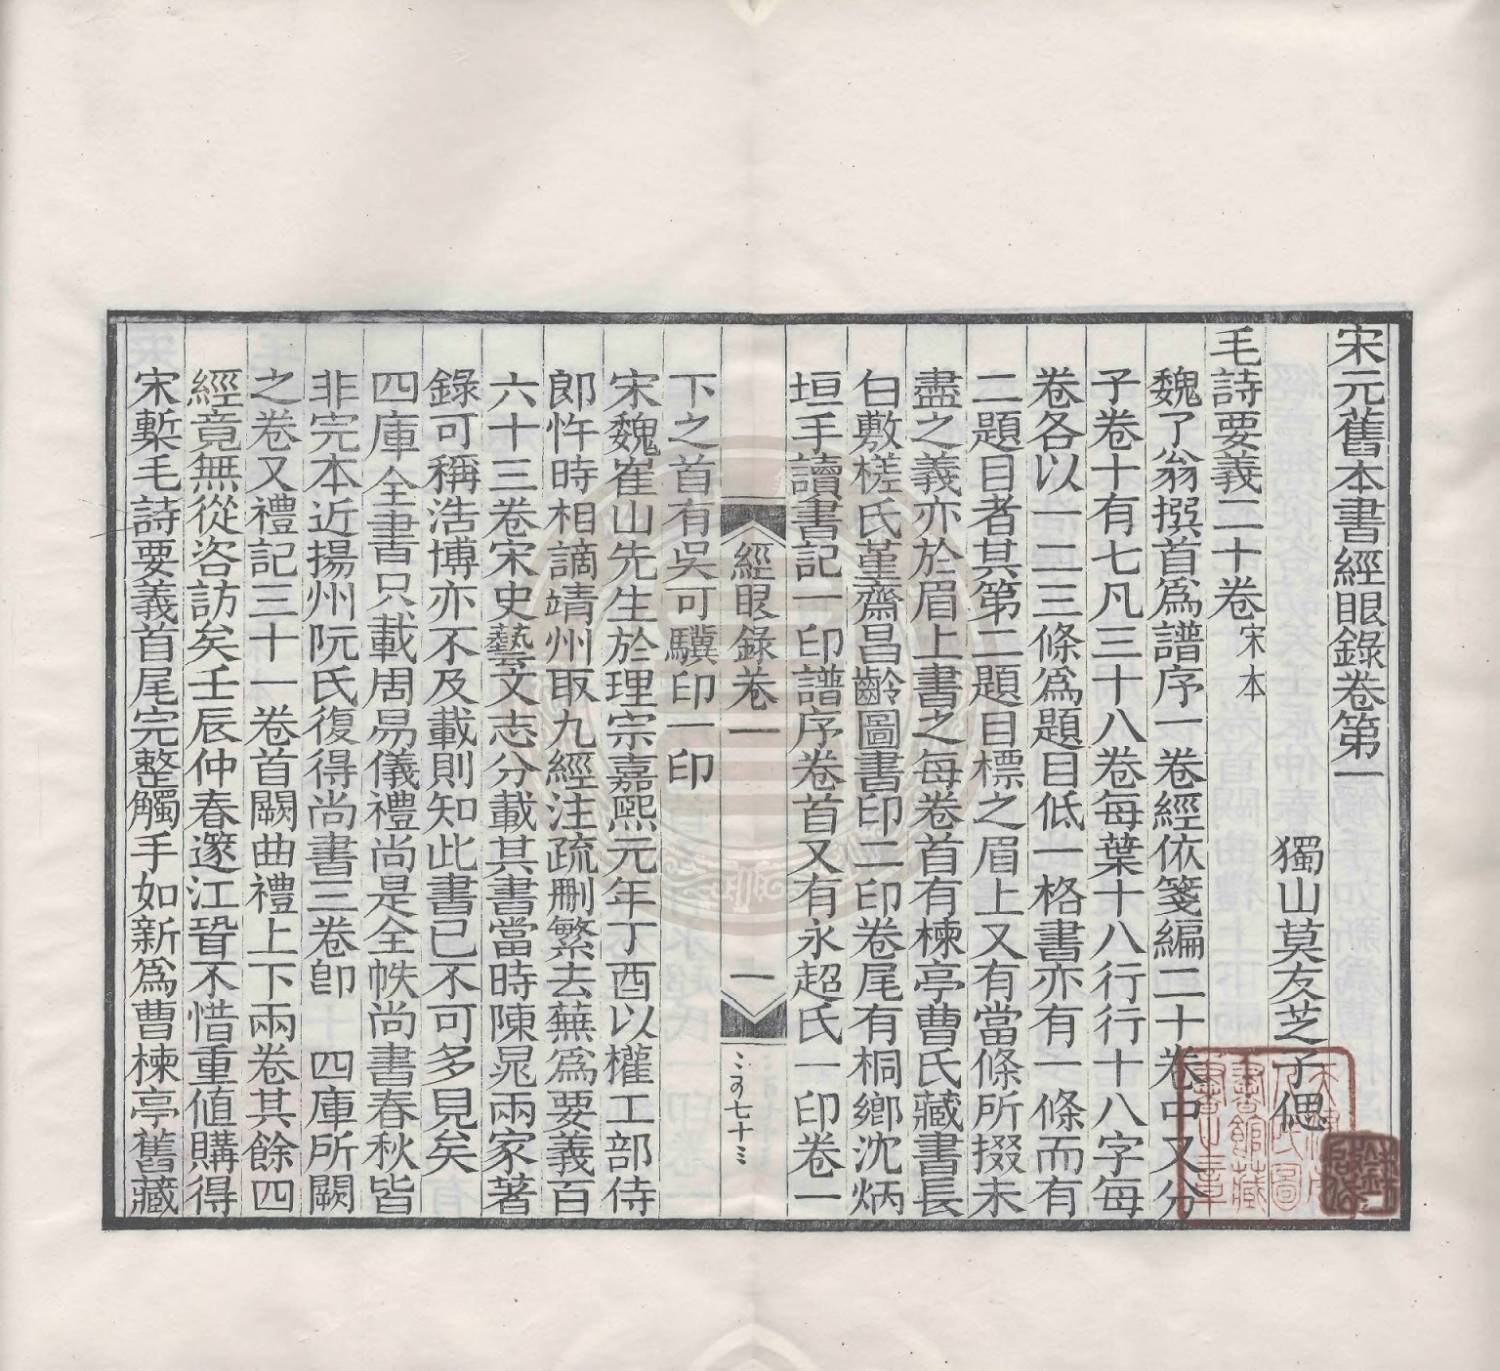 宋元舊本書經眼錄卷第一
獨山莫友芝子偲
毛詩要義二十卷宋本
魏了翁撰首爲譜序一卷經依箋編二十卷中又分
子卷十有七凡三十八卷每葉十八行行十八字每
卷各以一二三條爲題目低一格書亦有一條而有
二題目者其第二題目標之眉上又有當條所掇未
盡之義亦於眉上書之每卷首有楝亭曹氏藏書長
白敷槎氏堇齋昌齡圖書印二印卷尾有桐鄉沈炳
垣手讀書記一印譜序卷首又有永超氏一印卷一
經眼錄卷一
一
下之首有吳可驥印一印
宋魏崔山先生於理宗嘉熙元年丁酉以權工部侍
郎忤時相謫靖州取九經注疏刪繁去蕪爲要義百
六十三卷宋史藝文志分載其書當時陳晁兩家著
錄可稱浩博亦不及載則知此書已不可多見矣
四庫全書只載周易儀禮尚是全帙尚書春秋皆
非完本近揚州阮氏復得尚書三卷卽 四庫所闕
之卷又禮記三十一卷首闕曲禮上下兩卷其餘四
經竟無從咨訪矣壬辰仲春邃江昝不惜重值購得
宋槧毛詩要義首尾完整觸手如新爲曹楝亭舊藏